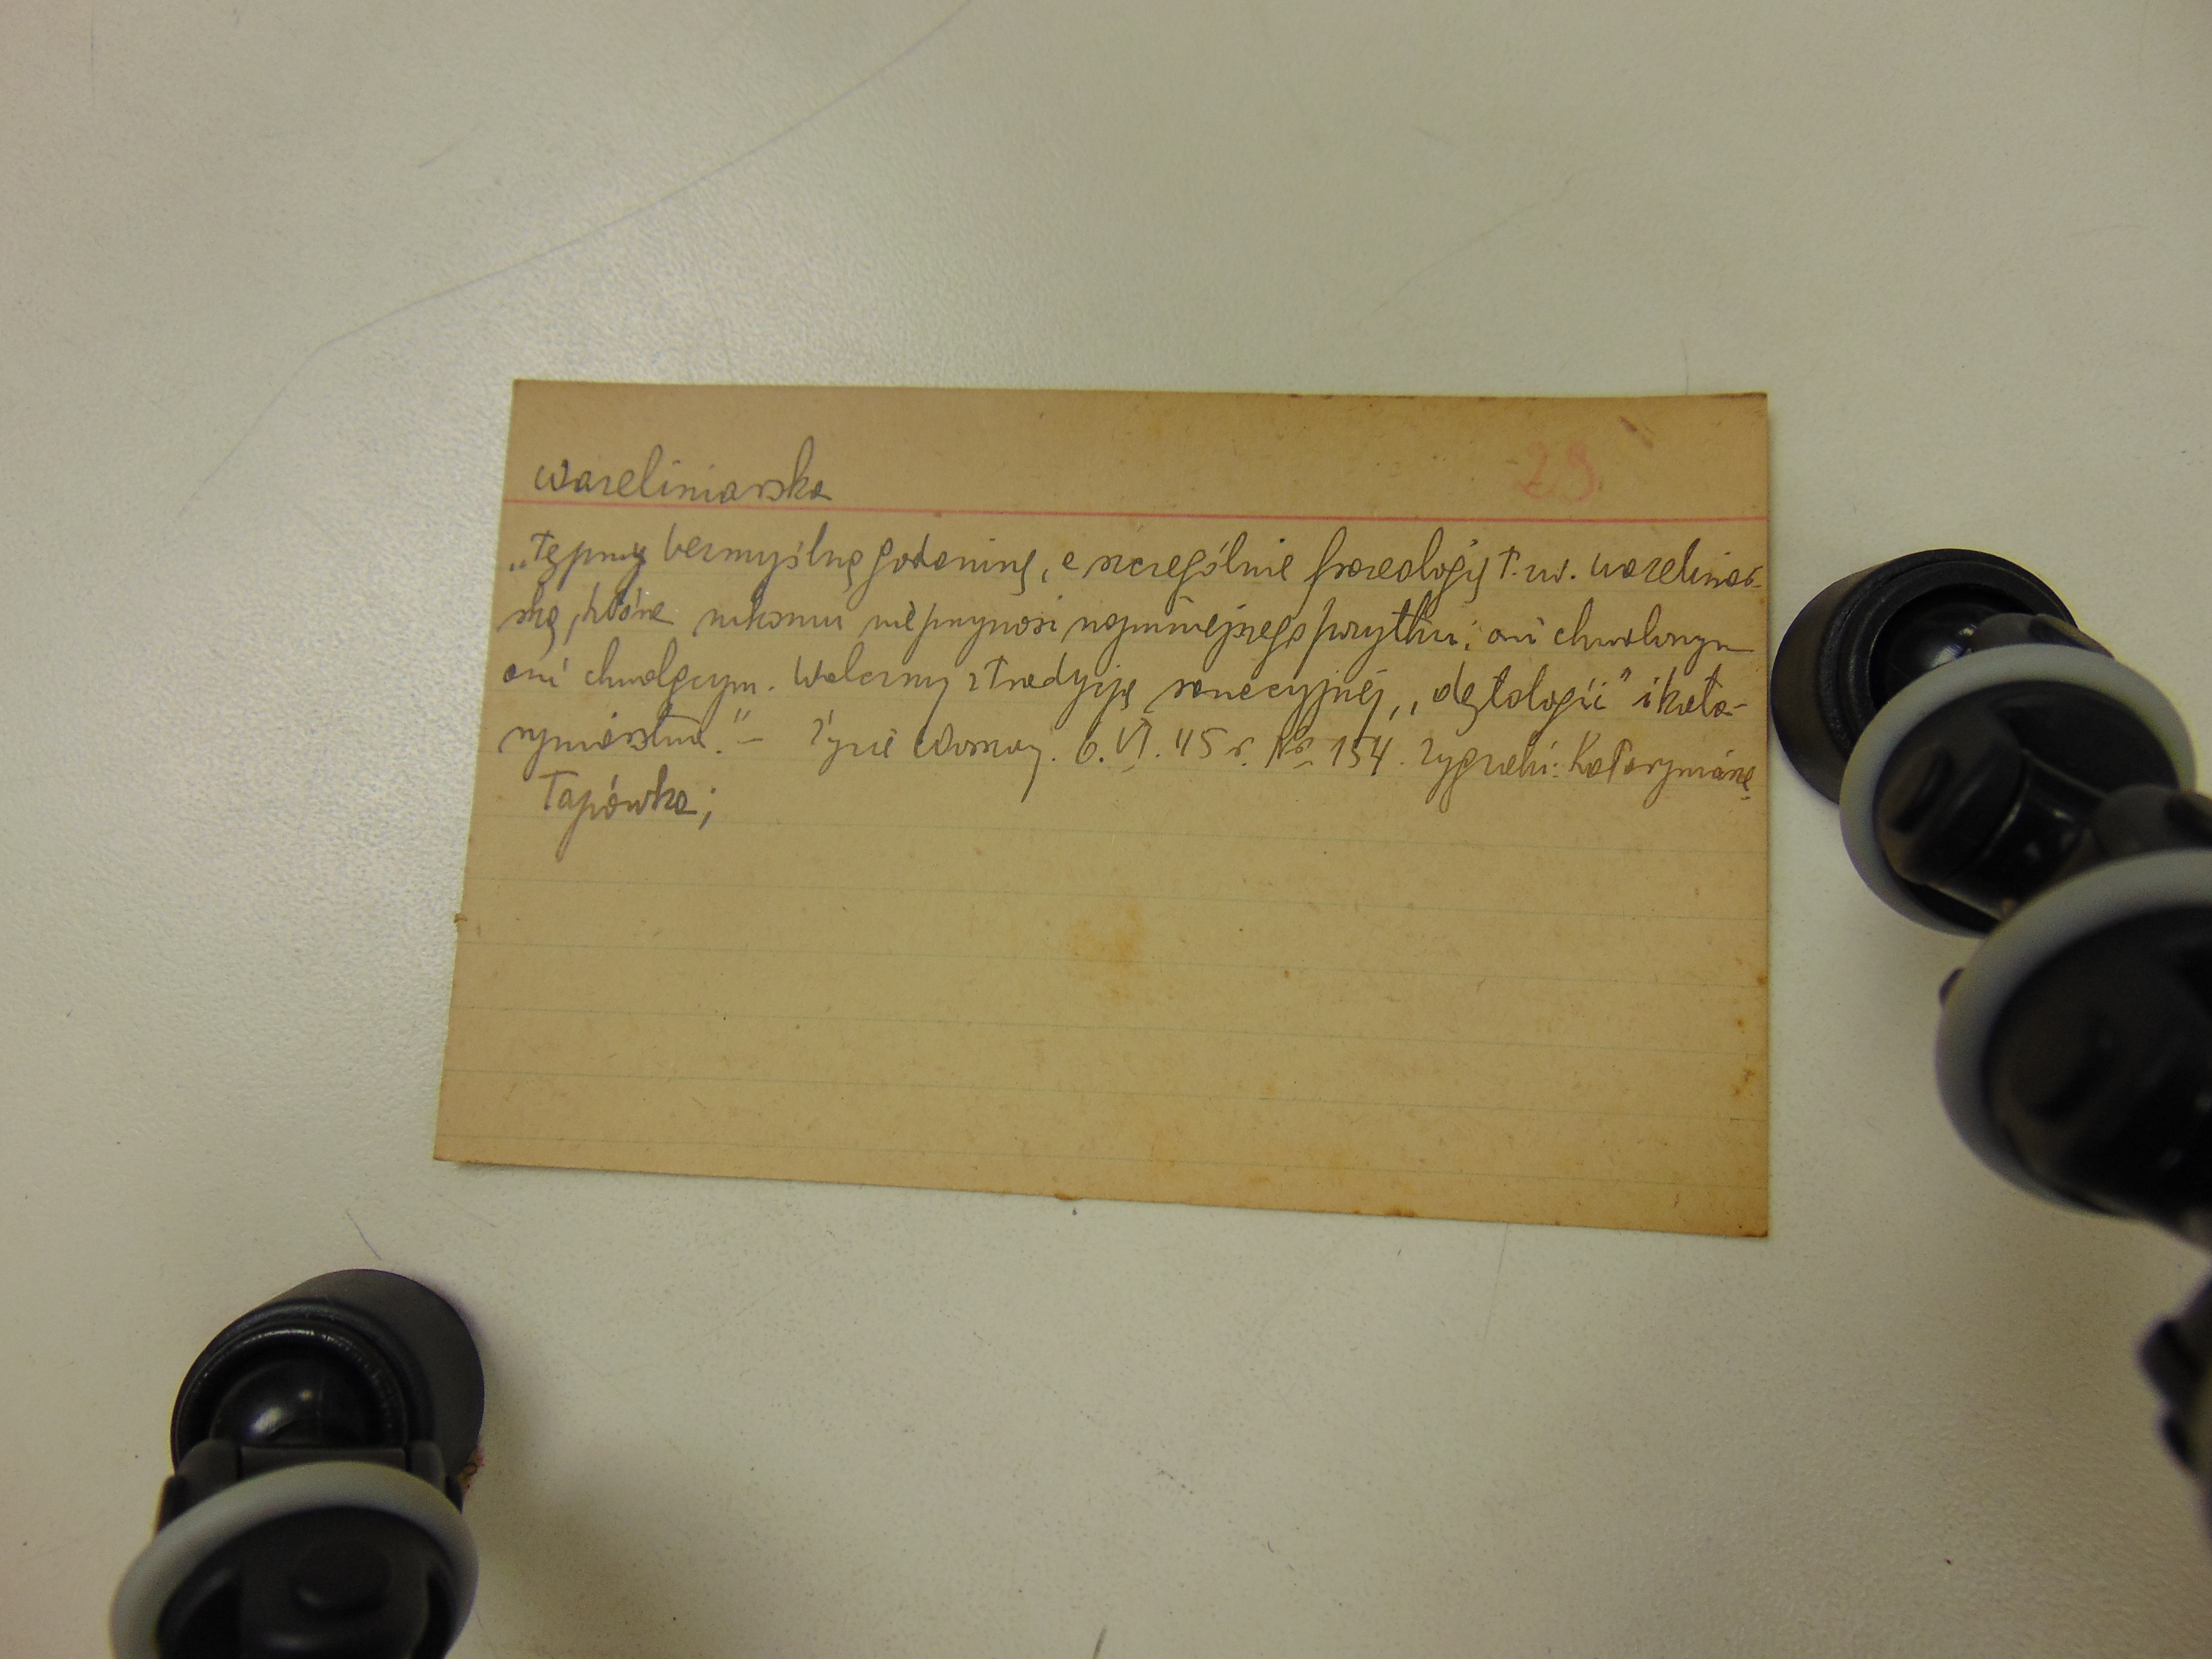 wazeliniarska
29
„Tępmy bezmyślną gadaninę, a szczególnie frazeologię t. zw. wazeliniar-
ską, która nikomu nie przynosi najmniejszego pożytku: ani chwalonym
ani chwalącym. Walczmy z tradycją sanacyjnej „dętologii” i kata-
ryniarstwa.” – Życie Warszawy. 6. VI. 45 r. № 154. Zygzaki:
Tapówka;